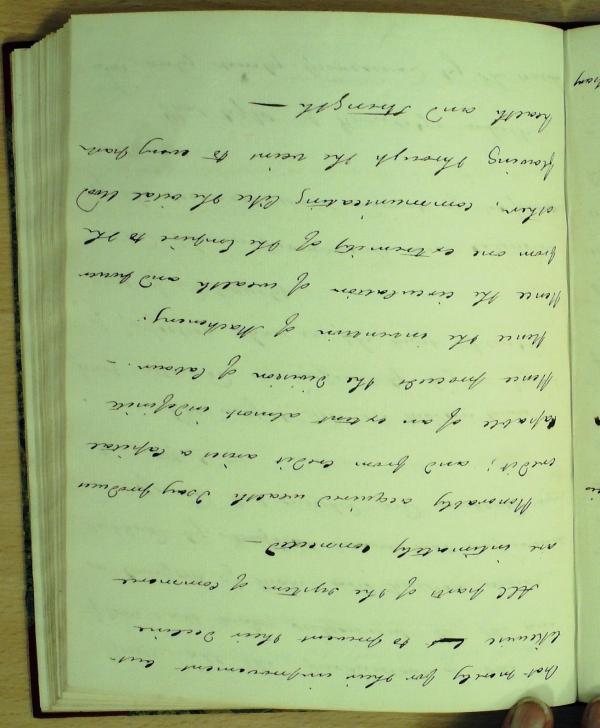 not merely for their improvement but
likewise to prevent their decline
All parts of the system of Commerce
are intimately connected —
Honorably acquired wealth I say produces
credit; and from credit arises a Capital
Capable of an extent almost indefinite
Hence proceeds the Division of Labour. —
Hence the invention of Machinery.
Hence the circulation of wealth and power
from one extremity of the Empire to the
other, communicating like the vital blood
flowing through the veins to every part
health and strength —